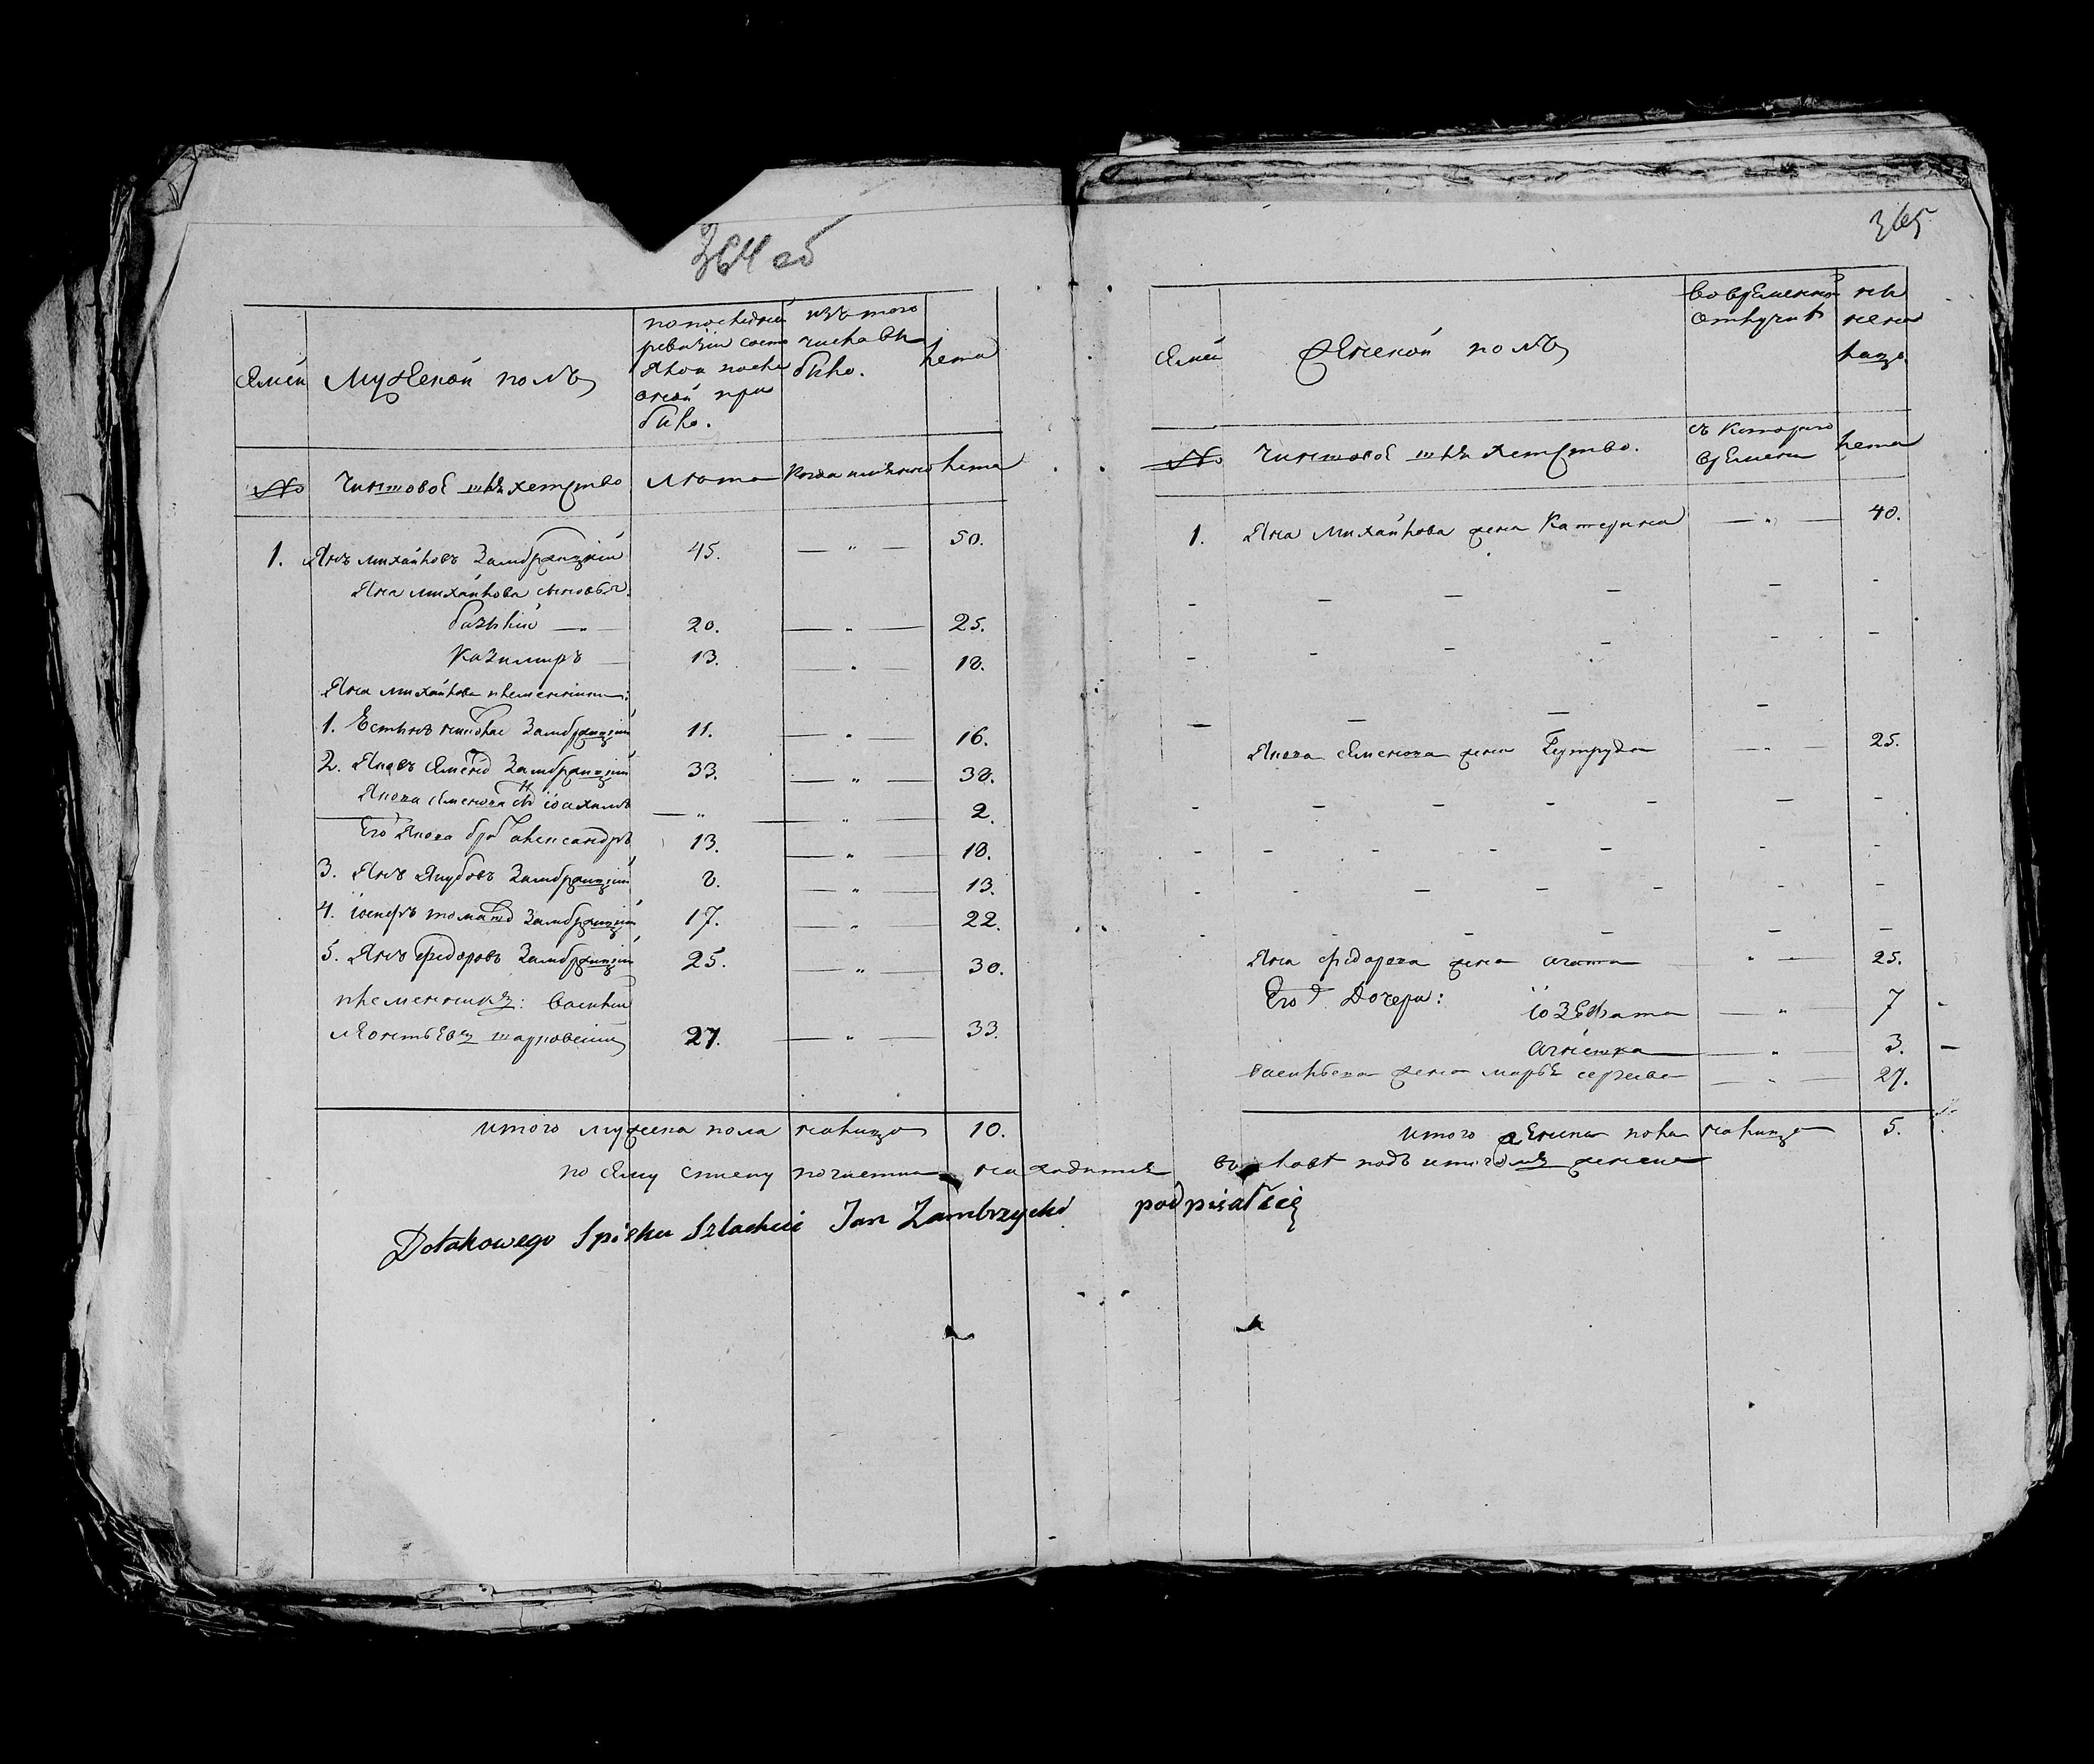 364 об
Семьи
Мужескои полъ
по последней
ревизіи состо
яхои после
оной при
было.
изъ того
числа вы
было.
лета
№
Чиншовое шляхетство
Лета
Когда именно
лета
1. Янъ михайловъ Замбржицкій 45. — " — 50.
Яна михайлова сыновья:
базылій — " — 20. — " — 25.
Казимиръ — 13. — " — 18.
Яна михайлова племенники:
1. Замбржицкій 11. — " — 16.
2. Яковъ Семено Замбржицкій 33. — " — 38.
Якова Семенова сынъ іоахимъ — " — — " — 2.
Его Якова братъ александръ 13. — " — 18.
3. Янъ Якубовъ Замбржицкій 8. — " — 13.
4. іосифъ Замбржицкій 17. — " — 22.
5. Янъ федоровъ Замбржицкій 25. — " — 30.
племенникъ: василій
27. — " — 33.
итого мужеска пола налицо 10.
365
Семьи
Женскои полъ
во временно
отлучке
ны
не на
лицо
№
Чиншовое шляхетство.
съ котораго
времени
лета
1. Яна Михайлова жена Катерина — " — 40.
Якова Семенова жена — " — 25.
Яна федорова жена агата " — 25.
Его Дочери: іозефата — " — 7
агнешка — " — 3.
васильева жена марья — " — 27.
итого женска пола налицо 5.
по сему списку находится во подъ
Dotakowego Spisku Szlachcic Jan Zambrzycki podpisał się